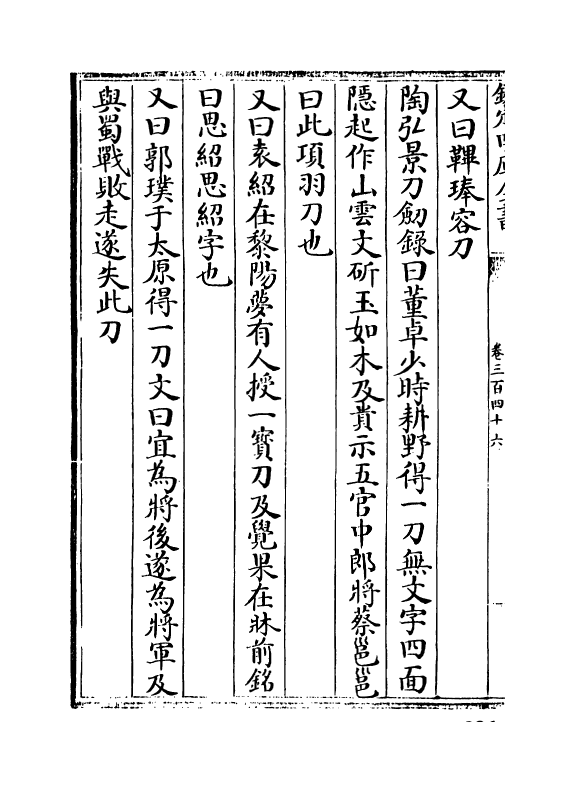 欽定四庫全書
卷三百四十六
又曰鞞琫容刀
陶弘景刀劒錄曰董卓少時耕野得一刀無文字四面
隱起作山雲文斫玉如木及貴示五官中郎將蔡邕邕
曰此項羽刀也
又曰袁紹在黎陽夢有人授一寳刀及覺果在牀前銘
曰思紹思紹字也
又曰郭璞于太原得一刀文曰宜為將後遂為將軍及
與蜀戰敗走遂失此刀